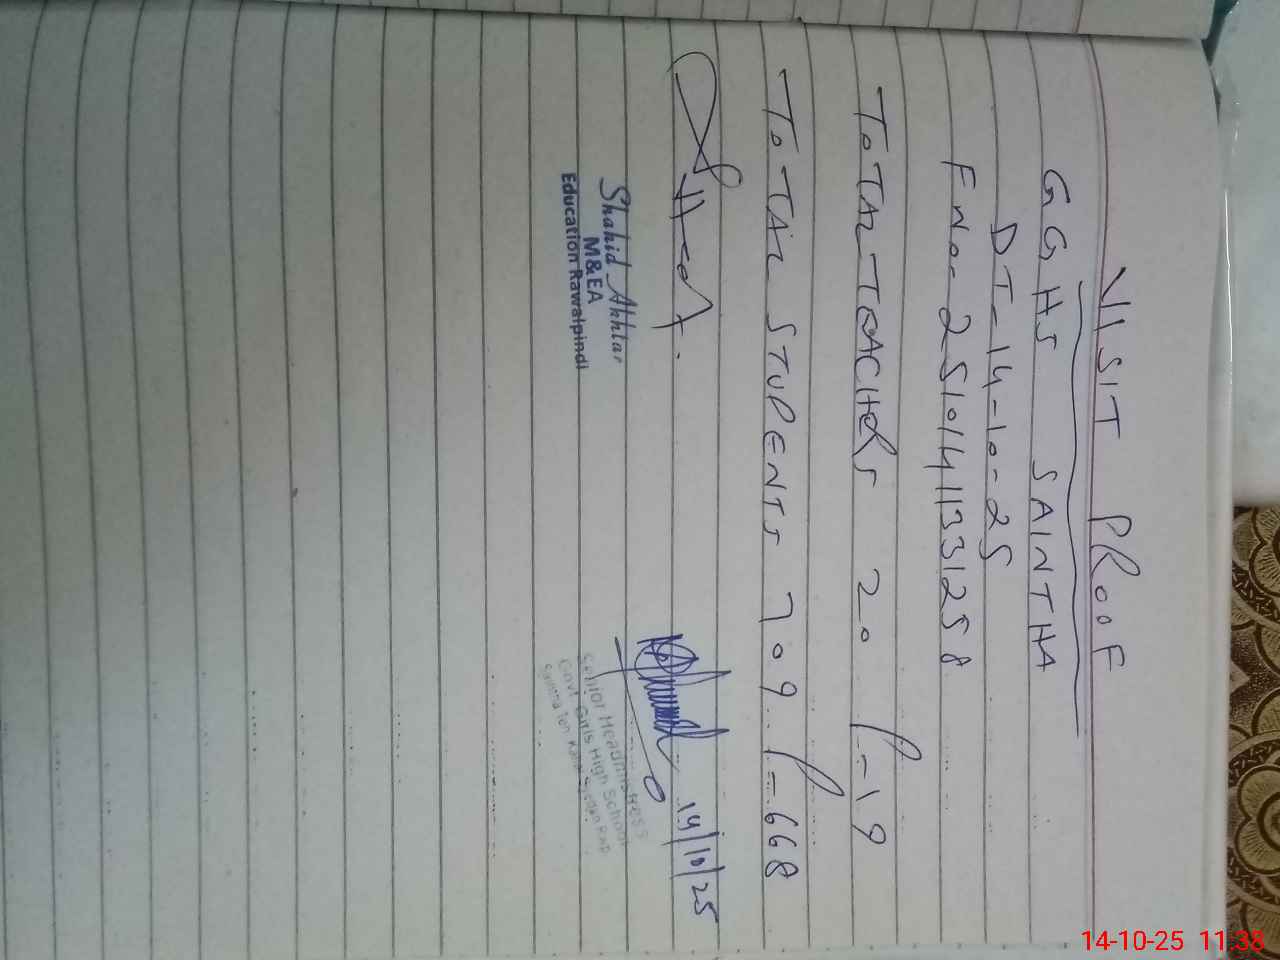 VISIT PROOF
GGHS SAINTHA
DT-14-10-25
FNO-25101411331258
TOTAL TEACHERS 20 P-19
TOTAL STUDENTS 709 P-668
14/10/25
Shahid Akhtar
M&EA
Education Rawalpindi
Senior Headmistress
Govt Girls High School
14-10-25 11:38